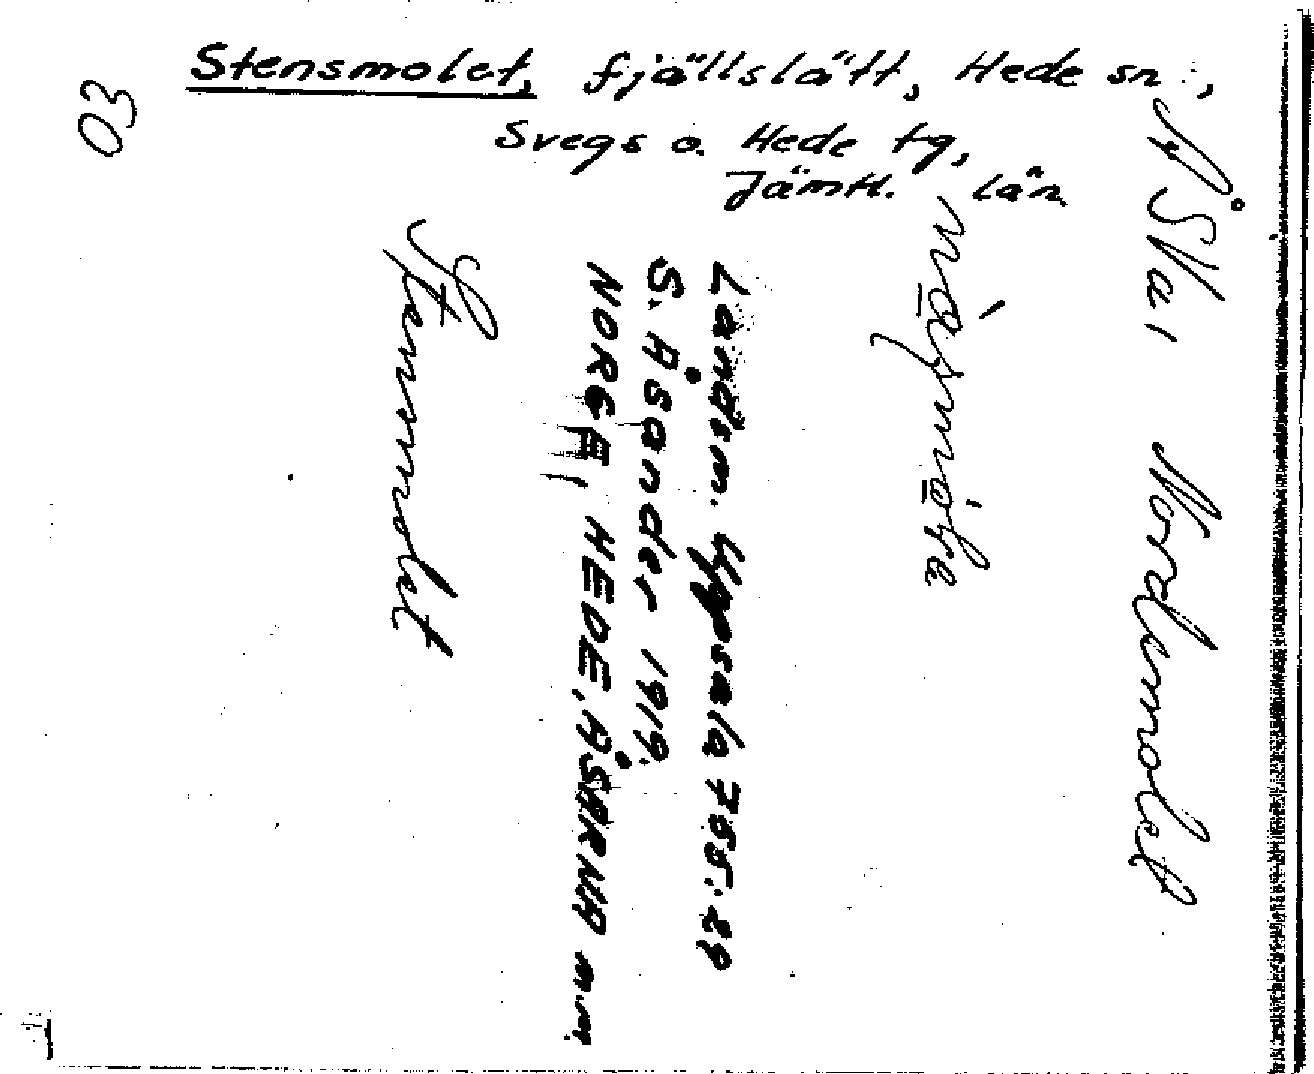 Stensmolet, fjällslätt, Hede sn.,
Svegs o. Hede tg,
Jämtl. län
03
Nordemolet
Landsm. Uppsala 755:29
S. Åsander 1919.
NORGE, HEDE, ÅSARNA m.m.
Stemmolet